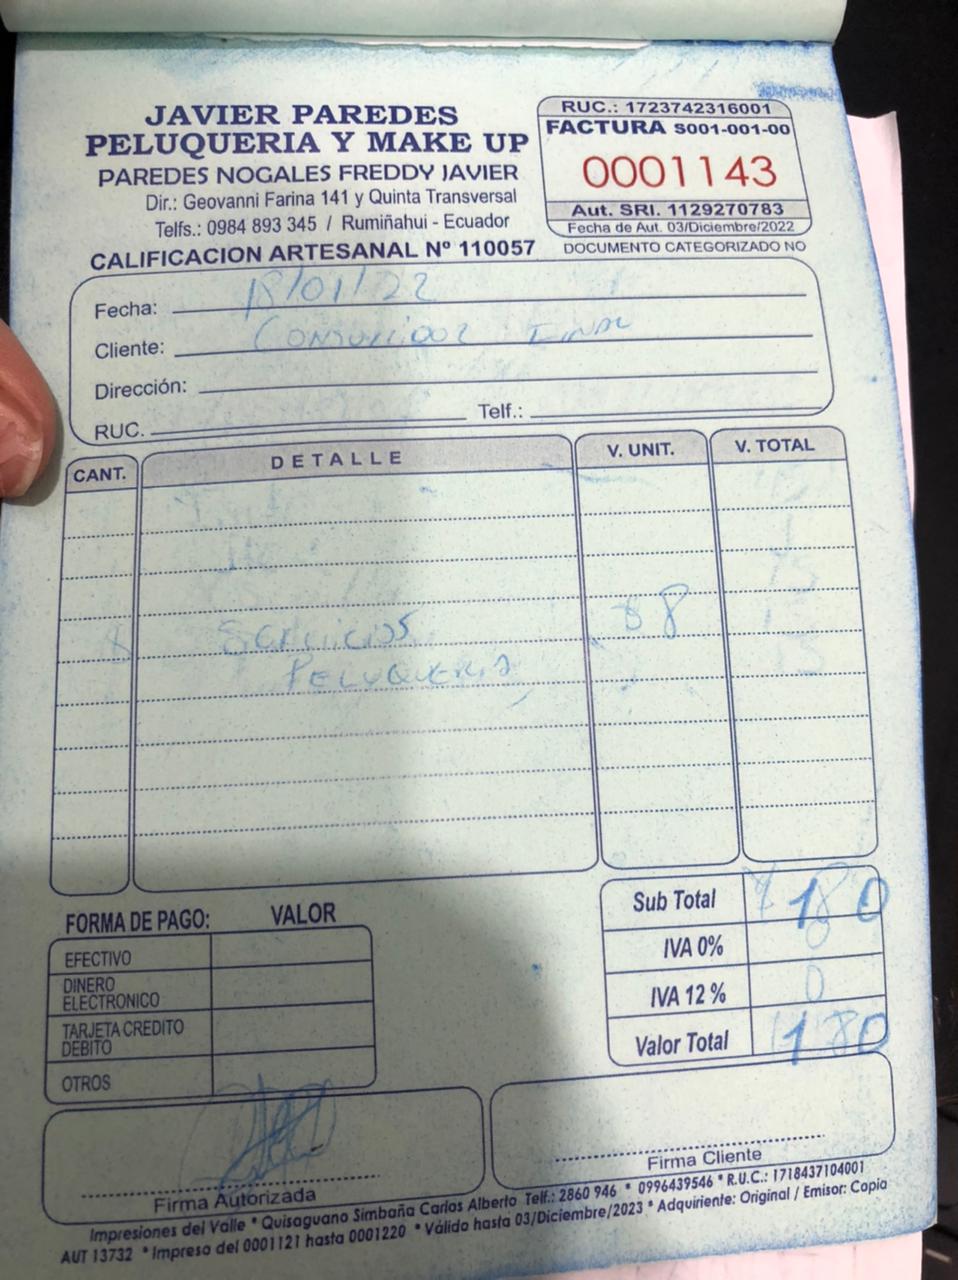 JAVIER PAREDES
PELUQUERIA Y MAKE UP
PAREDES NOGALES FREDDY JAVIER
Dir.: Geovanni Farina 141 y Quinta Transversal
Telfs.: 0984 893 345 / Rumiñahui - Ecuador
CALIFICACION ARTESANAL Nº 110057
RUC.: 1723742316001
FACTURA S001-001-00
0001143
Aut. SRI. 1129270783
Fecha de Aut. 03/Diciembre/2022
DOCUMENTO CATEGORIZADO NO
Fecha: 18/01/22
Cliente: Consumidor Final
Dirección:
RUC. Telf.:
CANT. DETALLE V. UNIT. V. TOTAL
Servicios $8
Peluqueria
Sub Total
IVA 0% 0
IVA 12% 0
Valor Total
FORMA DE PAGO: VALOR
EFECTIVO
DINERO
ELECTRONICO
TARJETA CREDITO
DEBITO
OTROS
Firma Autorizada
Firma Cliente
Impresiones del Valle * Quisaguano Simbaña Carlos Alberto Telf.: 2860 946 * 0996439546 * R.U.C.: 1718437104001
AUT 13732 * Impreso del 0001121 hasta 0001220 * Válido hasta 03/Diciembre/2023 * Adquiriente: Original / Emisor: Copia